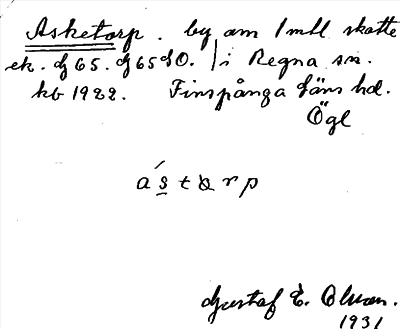 Asketorp. by om 1 mtl skatte
ek. bl 65. bl 65 d O. / i Regna sn.
kb 1922. Finspånga läns hd.
Ögl
ástorp
Gustaf E. Olsson.
1931